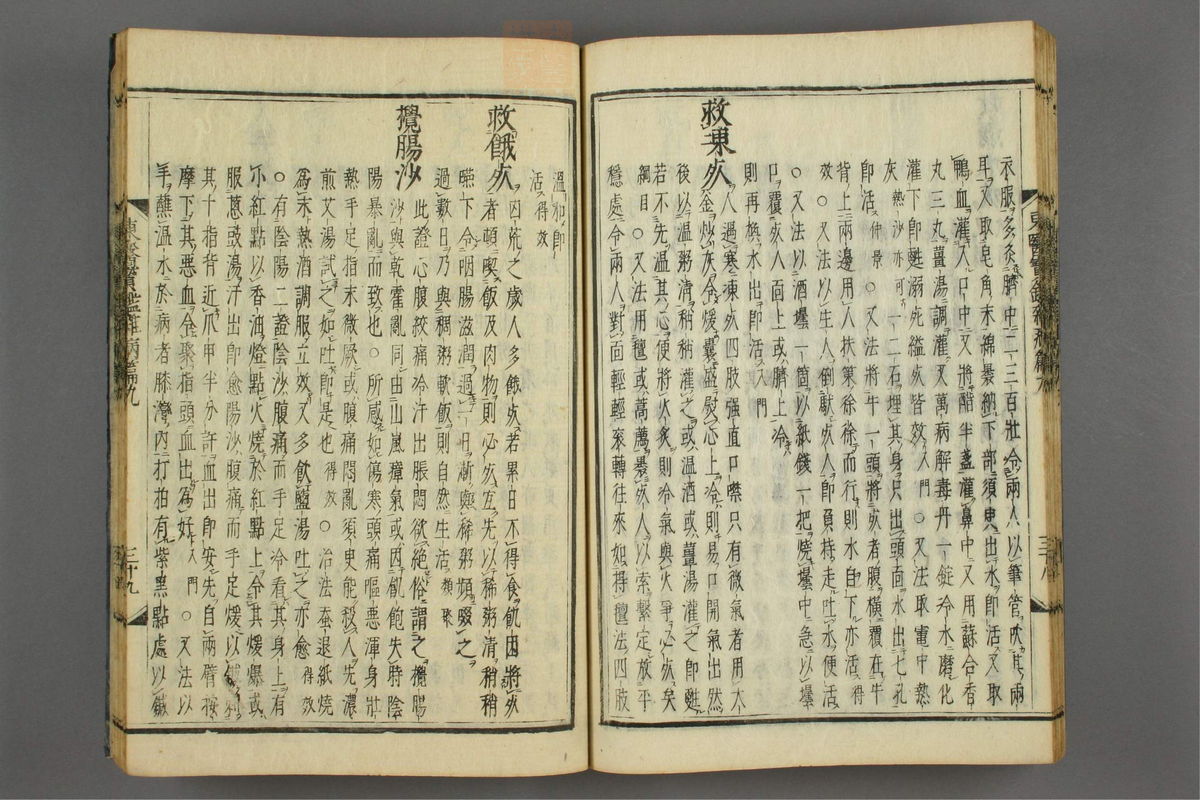 衣服多灸臍中二三百壯令兩人以筆管吹其兩
耳又取皂角末綿褁納下部須臾出水即活又取
鴨血灌入口中又將醋半盞灌鼻中又用蘇合香
丸三丸薑湯調灌又萬病解毒丹一錠冷水磨化
灌下即甦溺死縊死皆效入門○又法取竈中熱
灰熱沙亦可一二石埋其身只出頭面水出七孔
即活仲景○又法將牛一頭將死者腹橫覆在牛
背上兩邊用人扶策徐徐而行則水自下亦活得
效○又法以生人倒馱死人即負持走吐水便活
○又法以酒壜一箇以紙錢一把燒壜中急以壜
口覆死人面上或臍上冷
則再換水出即活入門
救凍死 人遇寒凍死四肢强直口噤只有微氣者用大
釜炒灰令煖囊盛熨心上冷則易口開氣出然
後以温粥清稍稍灌之或温酒或薑湯灌之即甦
若不先温其心便將火炙則冷氣與火爭必死矣
綱目○又法用氊或藁薦褁死人以索繫定放平
穩處令兩人對面輕輕滚轉往來如捍氊法四肢
東醫寶鑑雜病篇九
三十八
温和即
活得效
救餓死 凶荒之歲人多餓死若累日不得食飢困將死
者頓喫飯及肉物則必死宜先以稀粥清稍稍
嚥下令咽腸滋潤過一日漸與稀粥頻啜之
過數日乃與稠粥軟飯則自然生活類聚
攪腸沙 此證心腹絞痛冷汗出脹悶欲絶俗謂之攪腸
沙與乾霍亂同由山嵐瘴氣或因飢飽失時陰
陽暴亂而致也○所感如傷寒頭痛嘔惡渾身壯
熱手足指末微厥或腹痛悶亂須臾能殺人先濃
煎艾湯試之如吐即是也得效○治法蚕退紙燒
為末熱酒調服立效又多飮鹽湯吐之亦愈得效
○有陰陽二證陰沙腹痛而手足冷看其身上有
小紅點以香油燈點火燒於紅點上令其煖爆或
服葱豉湯汗出即愈陽沙腹痛而手足煖以鍼刺
其十指背近爪甲半分許血出即安先自兩臂按
摩下其惡血令聚指頭血出為好入門○又法以
手蘸温水於病者膝灣內打拍有紫黑點處以鍼
東醫寶鑑雜病篇九
三十九